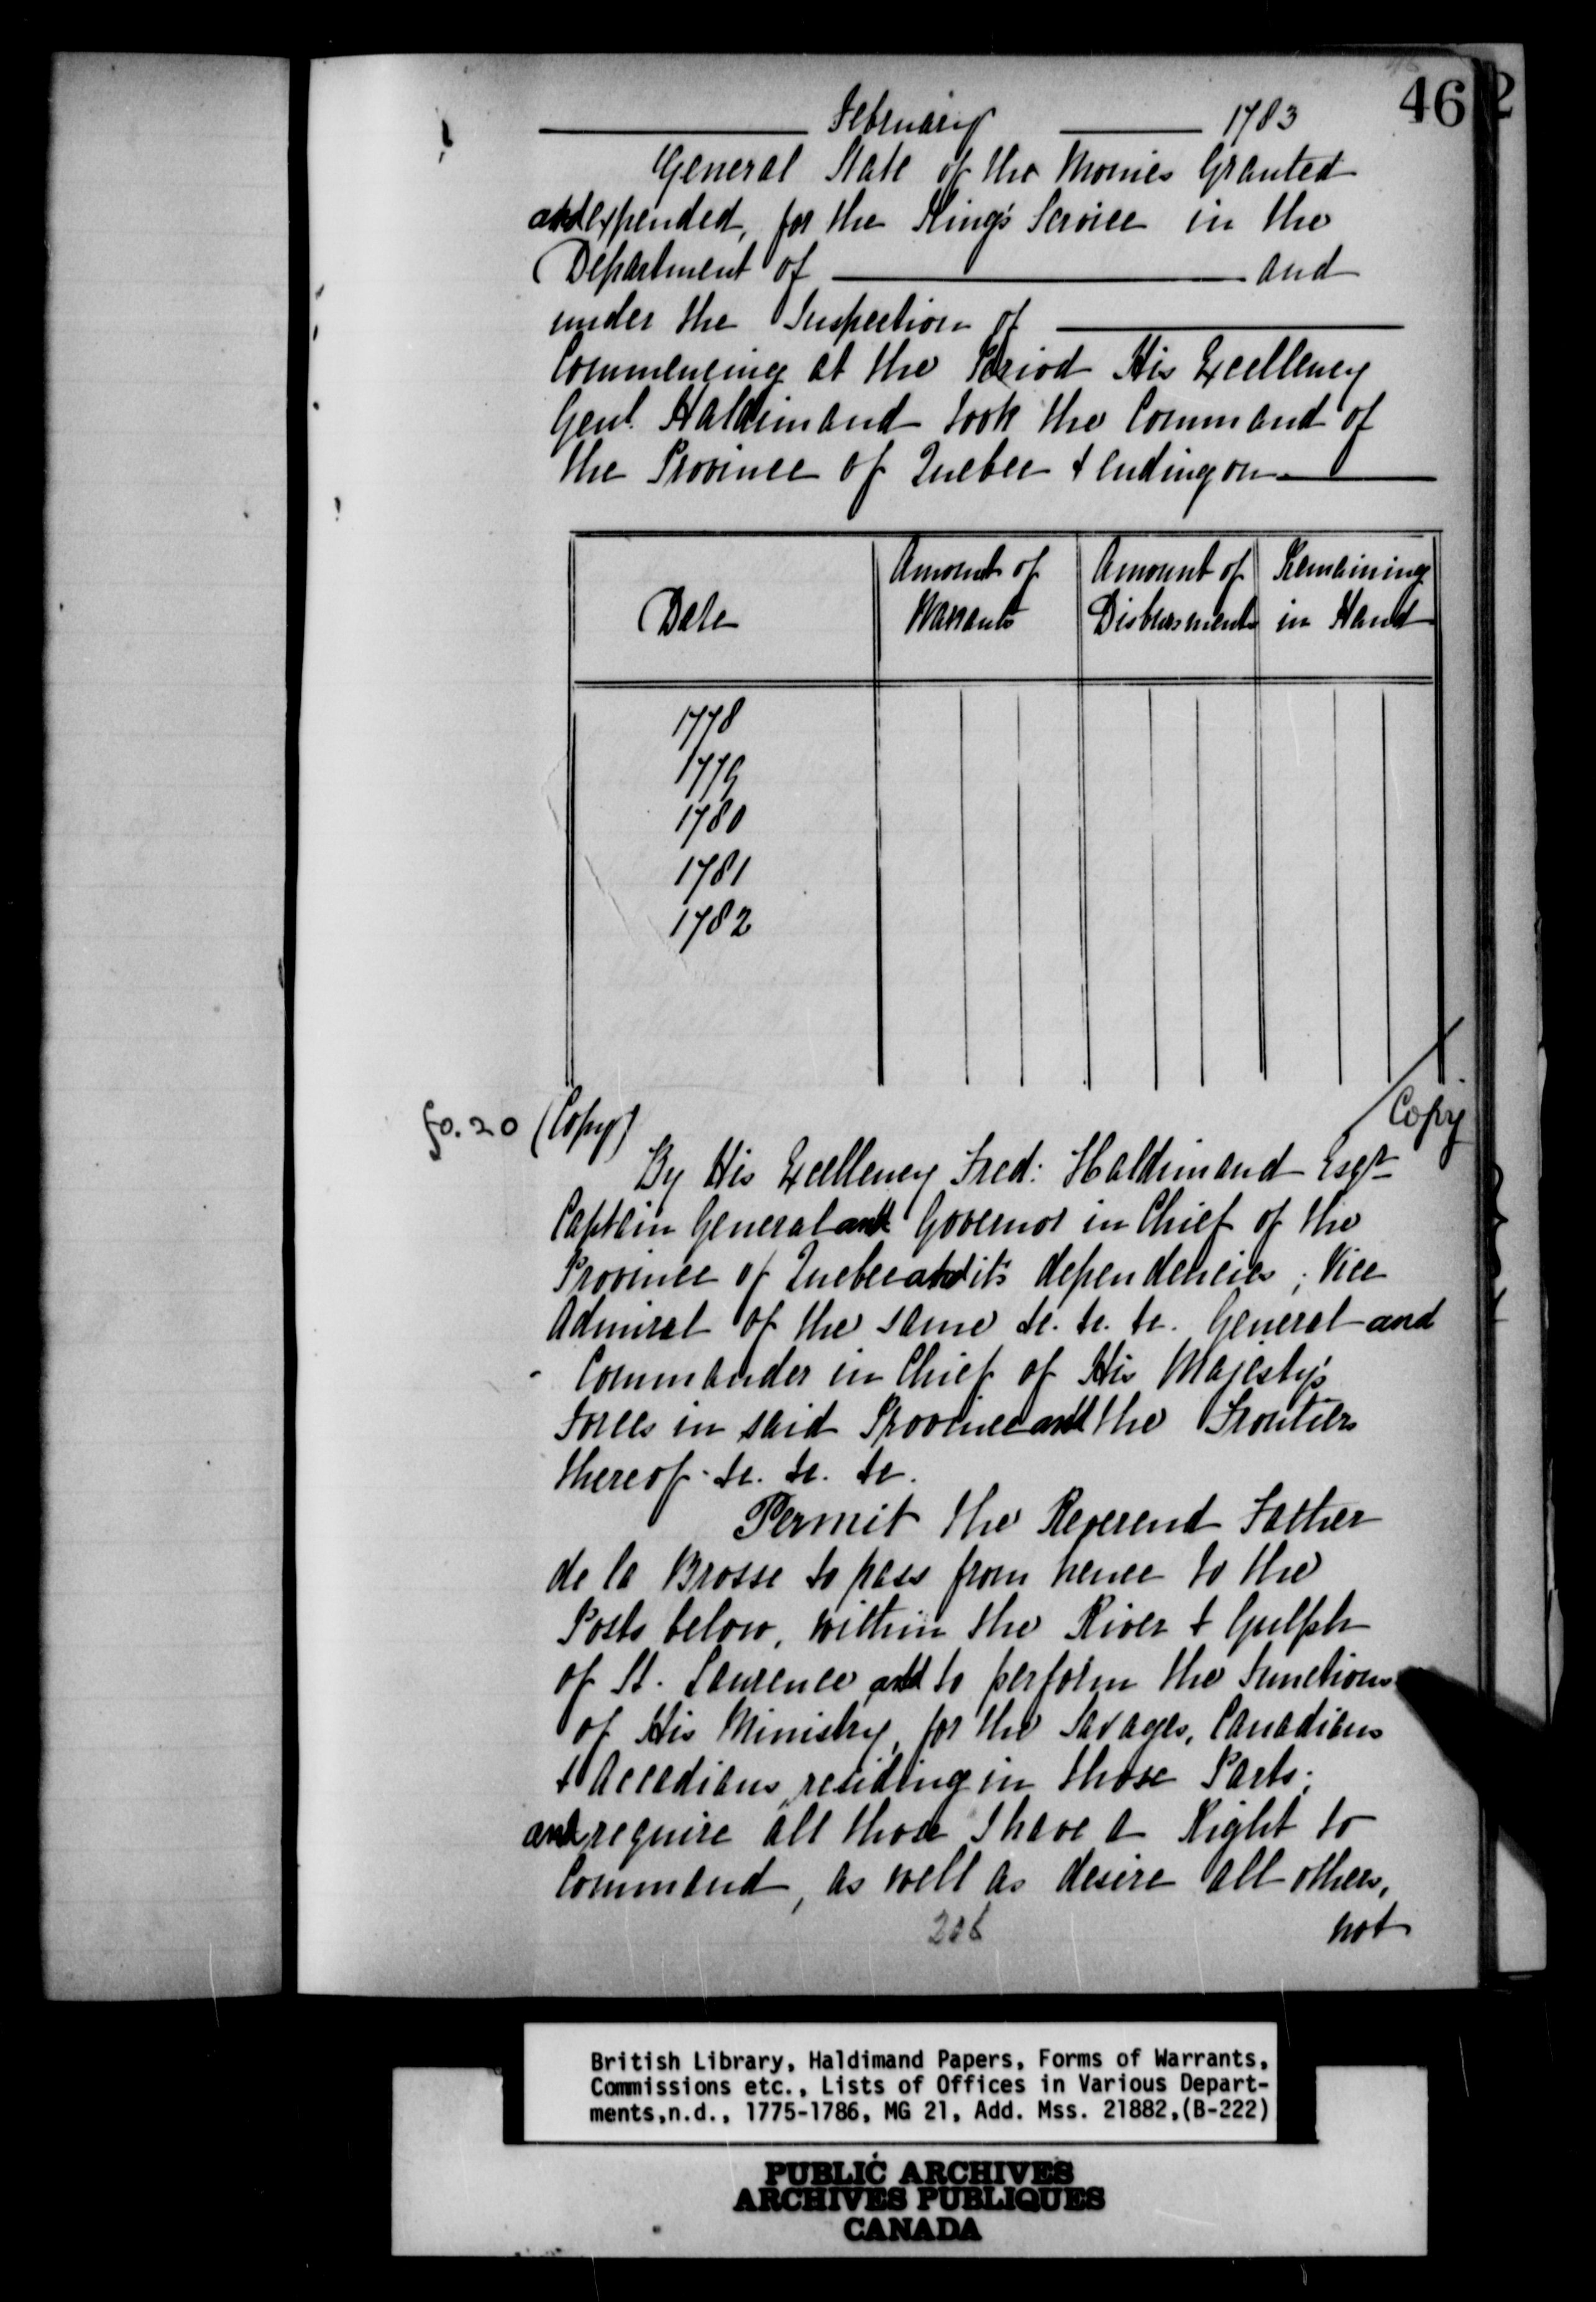 46
February 1783
General State of the Monies Granted
and expended, for the King's Service in the
Department of and
under the Inspection of
Commencing at the Period His Excellency
Genl. Haldimand took the Command of
the Province of Quebec & ending on
Date
Amount of Warrants
Amount of Disbursments
Remaining in Hand
1778
1779
1780
1781
1782
fo. 20 (Copy) Copy
By His Excellency Fred: Haldimand Esqr
Captain General and Governor in Chief of the
Province of Quebec and its dependencies, Vice
Admiral of the same &c. &c. &c. General and
Commander in Chief of His Majesty's
Forces in said Province and the Frontiers
thereof. &c. &c. &c.
Permit the Reverend Father
de la Brosse to pass from hence to the
Posts below, within the River & Gulph
of St. Laurence and to perform the Functions
of His Ministry, for the Savages, Canadians
& Accadians, residing in those Parts;
and require all those I have a Right to
Command, as well as desire all others,
206
not
British Library, Haldimand Papers, Forms of Warrants,
Commissions etc., Lists of Offices in Various Depart-
ments,n.d., 1775-1786, MG 21, Add. Mss. 21882,(B-222)
PUBLIC ARCHIVES
ARCHIVES PUBLIQUES
CANADA